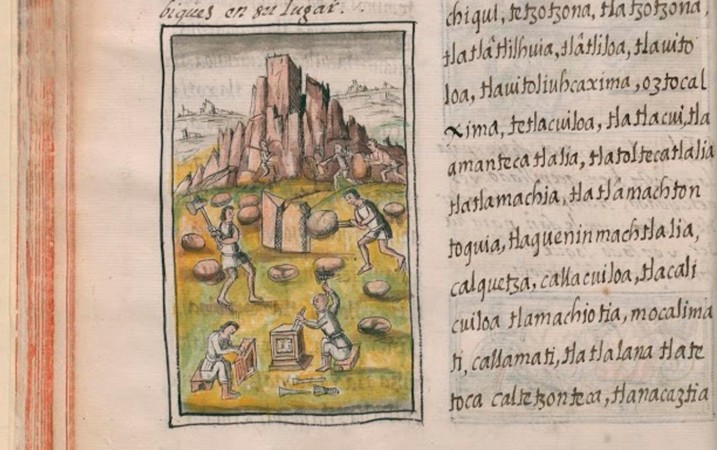 biques en su lugar.
chiqui, tetzotzona, tlatzotzona,
tlatlátlilhuia, tlátliloa, tlauito
loa, tlauitoliuhcaxima, oztocal
xima, tetlacuiloa, tlatlacui, tla
amantecatlalia, tlatoltecatlalia
tlatlamachia, tlatlamachton
toquia, tlaqueninmachtlalia,
calquetza, callacuiloa, tlacali
cuiloa tlamachiotia, mocalima
ti, callamati, tlatlalana tlate
toca caltetzonteca, tlanacaztia